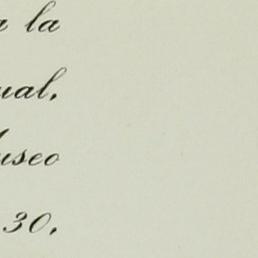 a la
ual,
useo
30,